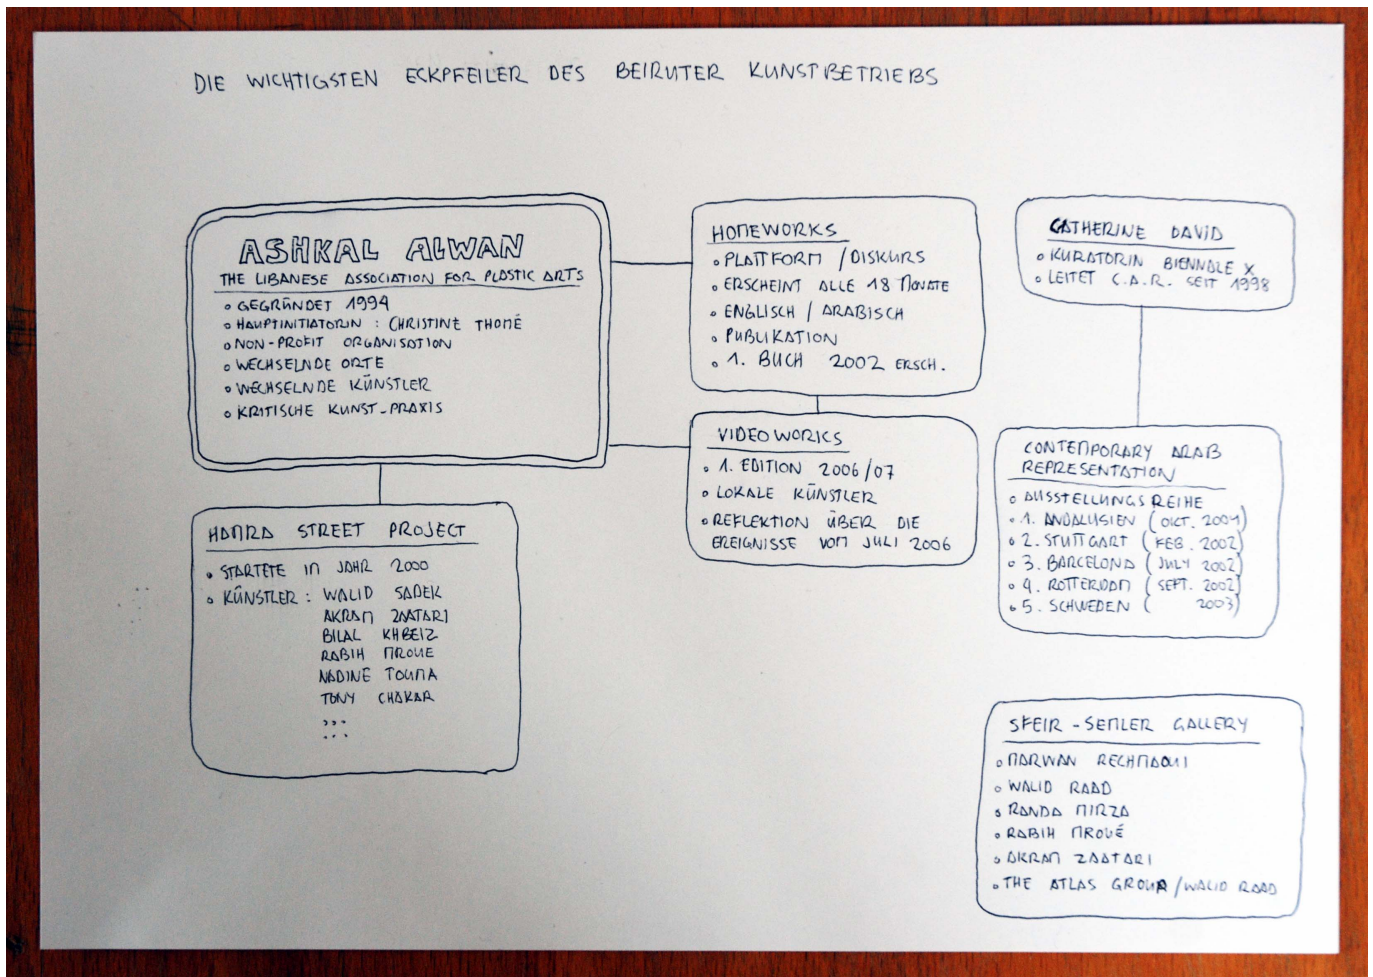 DIE WICHTIGSTEN ECKPFEILER DES BEIRUTER KUNSTBETRIEBS
ASHKAL ALWAN
THE LIBANESE ASSOCIATION FOR PLASTIC ARTS
GEGRÜNDET 1994
HAUPTINITIATORIN : CHRISTINE THOMÉ
NON-PROFIT ORGANISATION
WECHSELNDE ORTE
WECHSELNDE KÜNSTLER
KRITISCHE KUNST-PRAXIS
HAMRA STREET PROJECT
STARTETE IM JAHR 2000
KÜNSTLER : WALID SADEK
AKRAM ZAATARI
BILAL KHBEIZ
RABIH MROUE
NADINE TOUMA
TONY CHAKAR
...
...
HOMEWORKS
PLATTFORM / DISKURS
ERSCHEINT ALLE 18 MONATE
ENGLISCH / ARABISCH
PUBLIKATION
1. BUCH 2002 ERSCH.
VIDEOWORKS
1. EDITION 2006/07
LOKALE KÜNSTLER
REFLEKTION ÜBER DIE
EREIGNISSE VOM JULI 2006
CATHERINE DAVID
KURATORIN BIENNALE X
LEITET C.A.R. SEIT 1998
CONTEMPORARY ARAB
REPRESENTATION
AUSSTELLUNGSREIHE
1. ANDALUSIEN (OKT. 2001)
2. STUTTGART (FEB. 2002)
3. BARCELONA (JULY 2002)
4. ROTTERDAM (SEPT. 2002)
5. SCHWEDEN ( 2003)
SFEIR-SEMLER GALLERY
MARWAN RECHMAOUI
WALID RAAD
RANDA MIRZA
RABIH MROUÉ
AKRAM ZAATARI
THE ATLAS GROUP / WALID RAAD